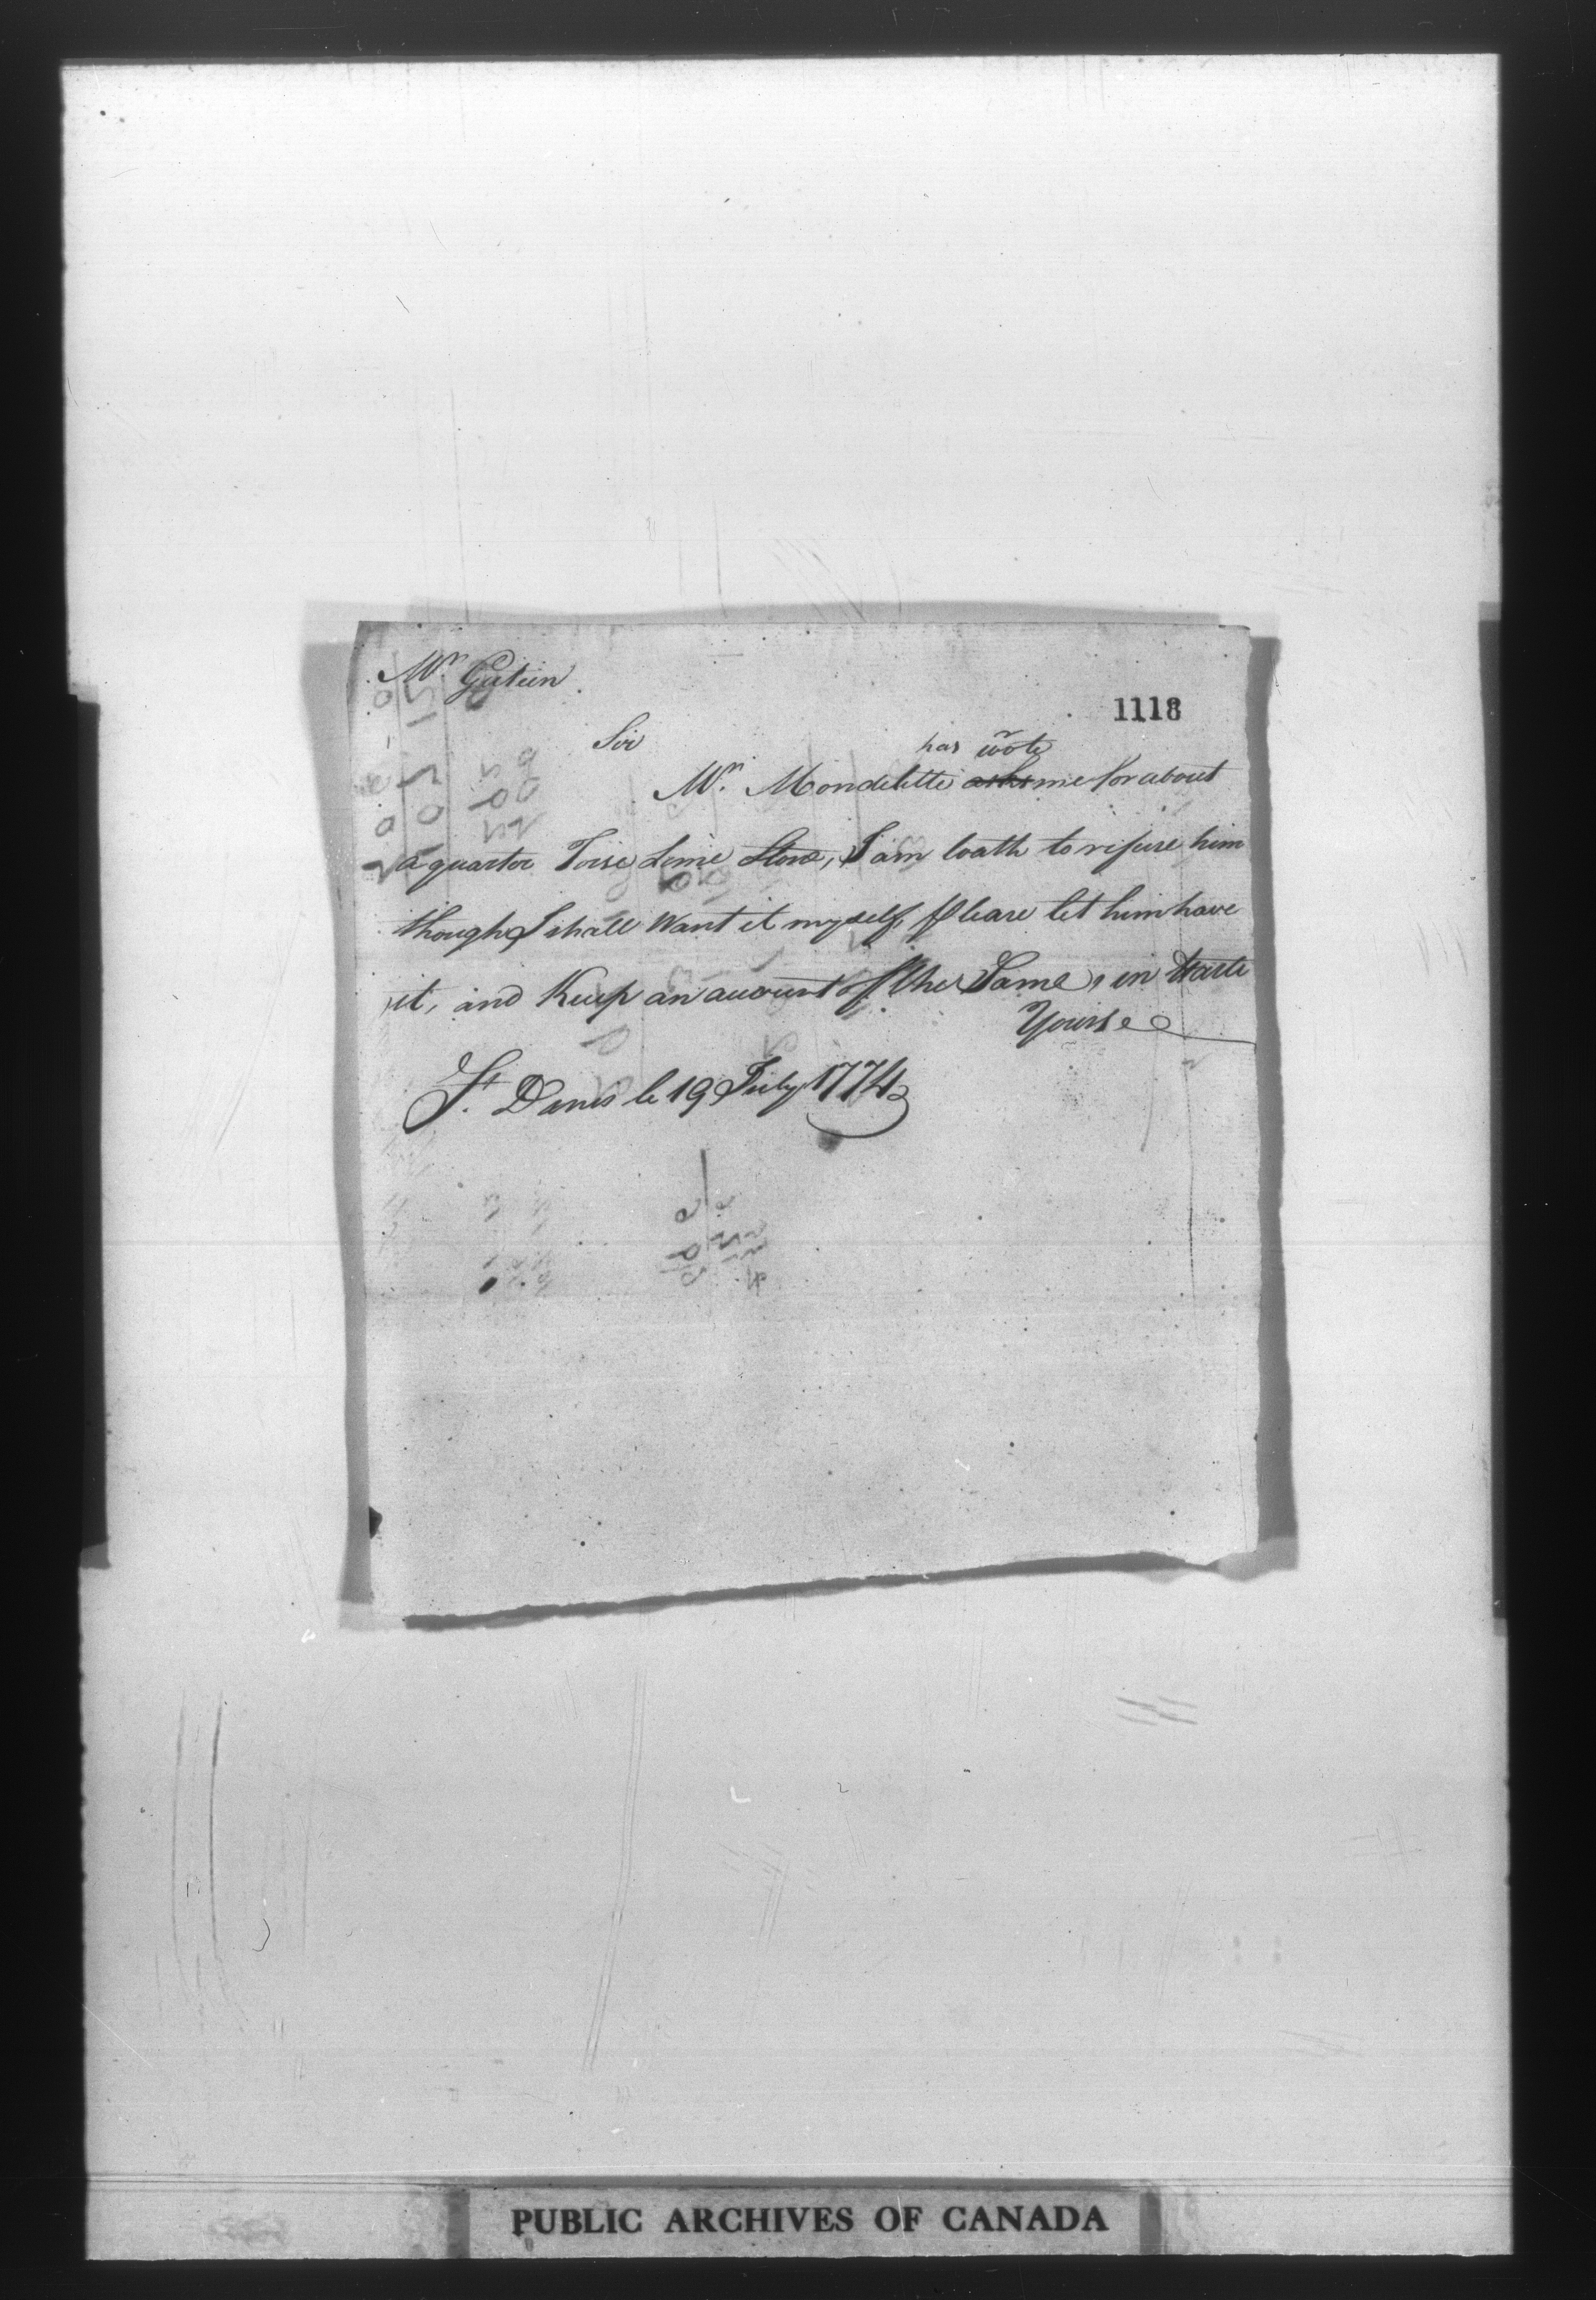 Mr. Gutein
1118
Sir
has wrote
Mr. Mondelette asks me for about
a quarter Toise Lime Stone, I am loath to refuse him
though I shall Want it myself, Please let him have
it, and Keep an account of the Same, in haste
Yours
St. Denis le 19 July 1774
PUBLIC ARCHIVES OF CANADA